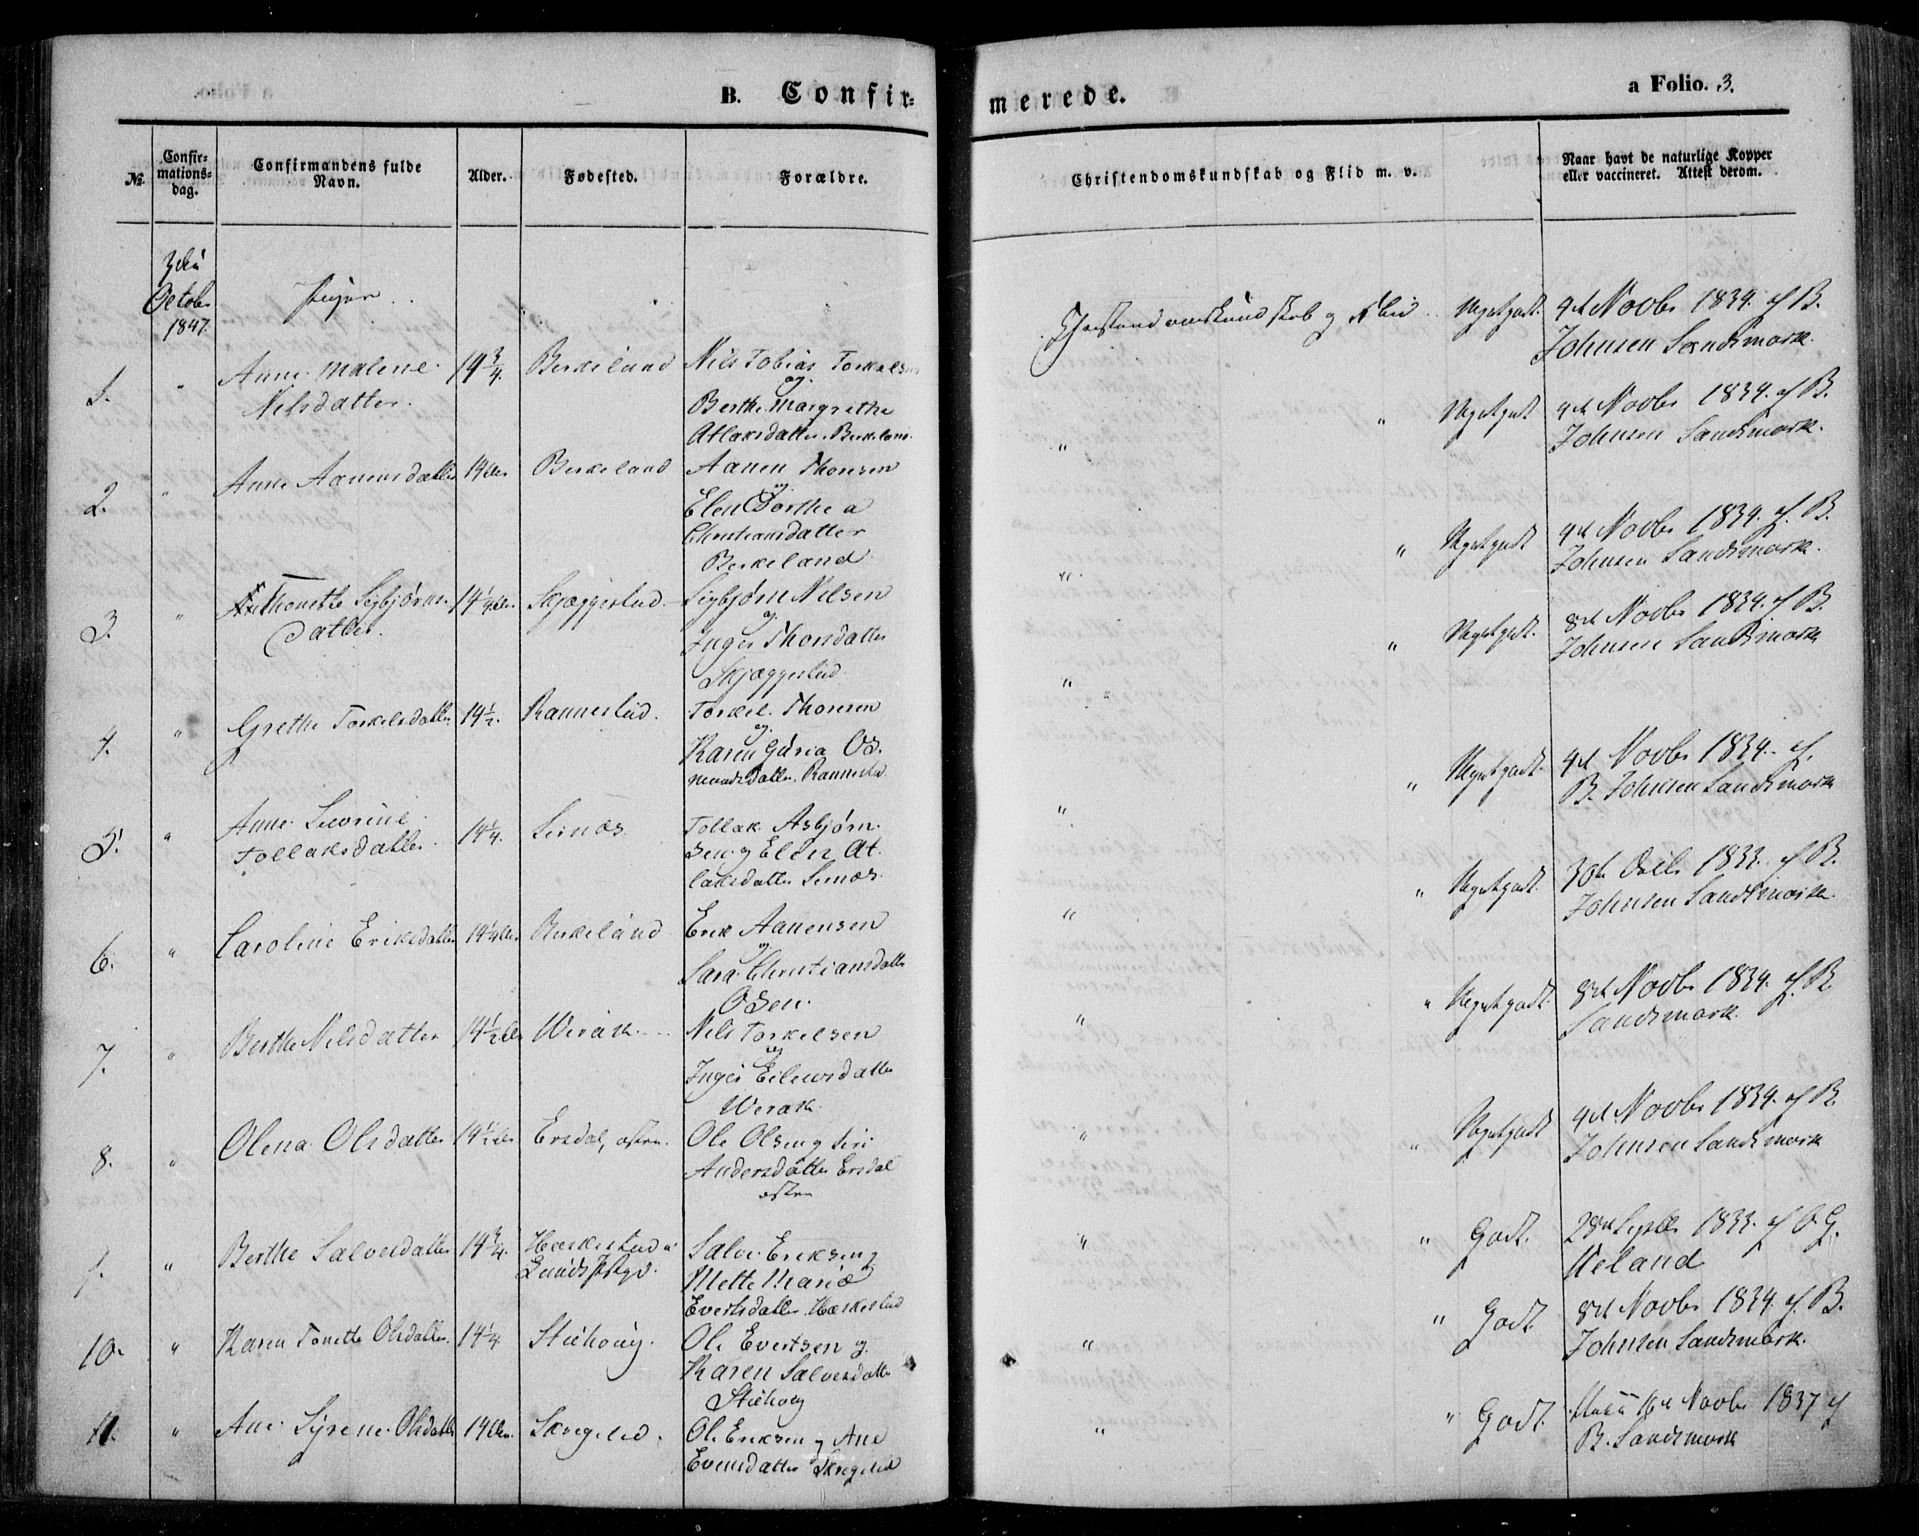 B. Confir=
merede.
a Folio. 3.
№.
Confir=
mations=
dag.
Confirmandens fulde
Navn.
Alder.
Fødested.
Forældre.
Christendomskundskab og Flid m. v.
Naar havt de naturlige Kopper
eller vaccineret. Attest derom.
October
1847.
Piger
1. " Anne Malene
Nilsdatter.
14 3/4. Birkeland
Nils Tobias Torkelsen
og
Berthe Margrethe
Atlaksdatter Birkeland.
Christendomskundskab og Flid Meget godt. 4de Novbr 1834. af B.
Johnsen Sandsmark.
2. " Anne Aanensdatter Birkeland
Aanen Thorsen
og
Elen Dorthea
Christiansdatter
Birkeland
" " Meget godt 4de Novbr 1834. af B.
Johnsen Sandsmark.
3. " Anthonette Sigbjørns
datter.
14 1/4 Skjæggestad
Sigbjørn Nilsen
og
Inger Thorsdatter
Skjæggestad
" " Meget godt 4de Novbr 1834. af B.
Johnsen Sandsmark.
4. " Grethe Torkelsdatter 14 1/2. Rannestad.
Torkel Thorsen
og
Karen Guria Os
mundsdatter Rannestad
" " Meget godt. 8de Novbr 1834. af B.
Johnsen Sandsmark
5. " Anne Severine
Tollaksdatter.
14 1/4. Sirnæs
Tollak Asbjørn
sen og Elen At
laksdatter Sirnæs.
" " Meget godt 4de Novbr 1834. af
B. Johnsen Sandsmark
6. " Caroline Eriksdatter 14 1/4 Birkeland
Erik Aanensen
og
Sara Christiansdatter
Osen.
" " Meget godt. 30te 1833. af B.
Johnsen Sandsmark.
7. " Berthe Nilsdatter 14 1/2 Virak
Nils Torkelsen
og
Inger Eilersdatter
Virak.
" " Meget godt. 8de Novbr 1834. af B.
Sandsmark.
8. " Olena Olsdatter 14 1/2 Ersdal, østre.
Ole Olsen og Siri
Andersdatter Ersdal
østre
" " Meget godt 4de Novbr 1834. af B.
Johnsen Sandsmark
9. " Berthe Salvesdatter 14 3/4. Hæskestad i
Lunds
Salve Eriksen og
Mette Maria
Evertsdatter Hæskestad
" " Godt. 28de Septbr 1833. af O. G.
Ueland
10. " Karen Tonette Olsdatter. 14 1/4 Stuhoug.
Ole Evertsen og
Karen Salvesdatter
Stuhoug
" " Godt. 8de Novbr 1834. af B.
Johnsen Sandsmark.
11. " Ane Syrene Olsdatter Skregelid.
Ole Eriksen og Ane
Evensdatter Skregelid
" " Godt. 16de Novbr 1837 af
B. Sandsmark